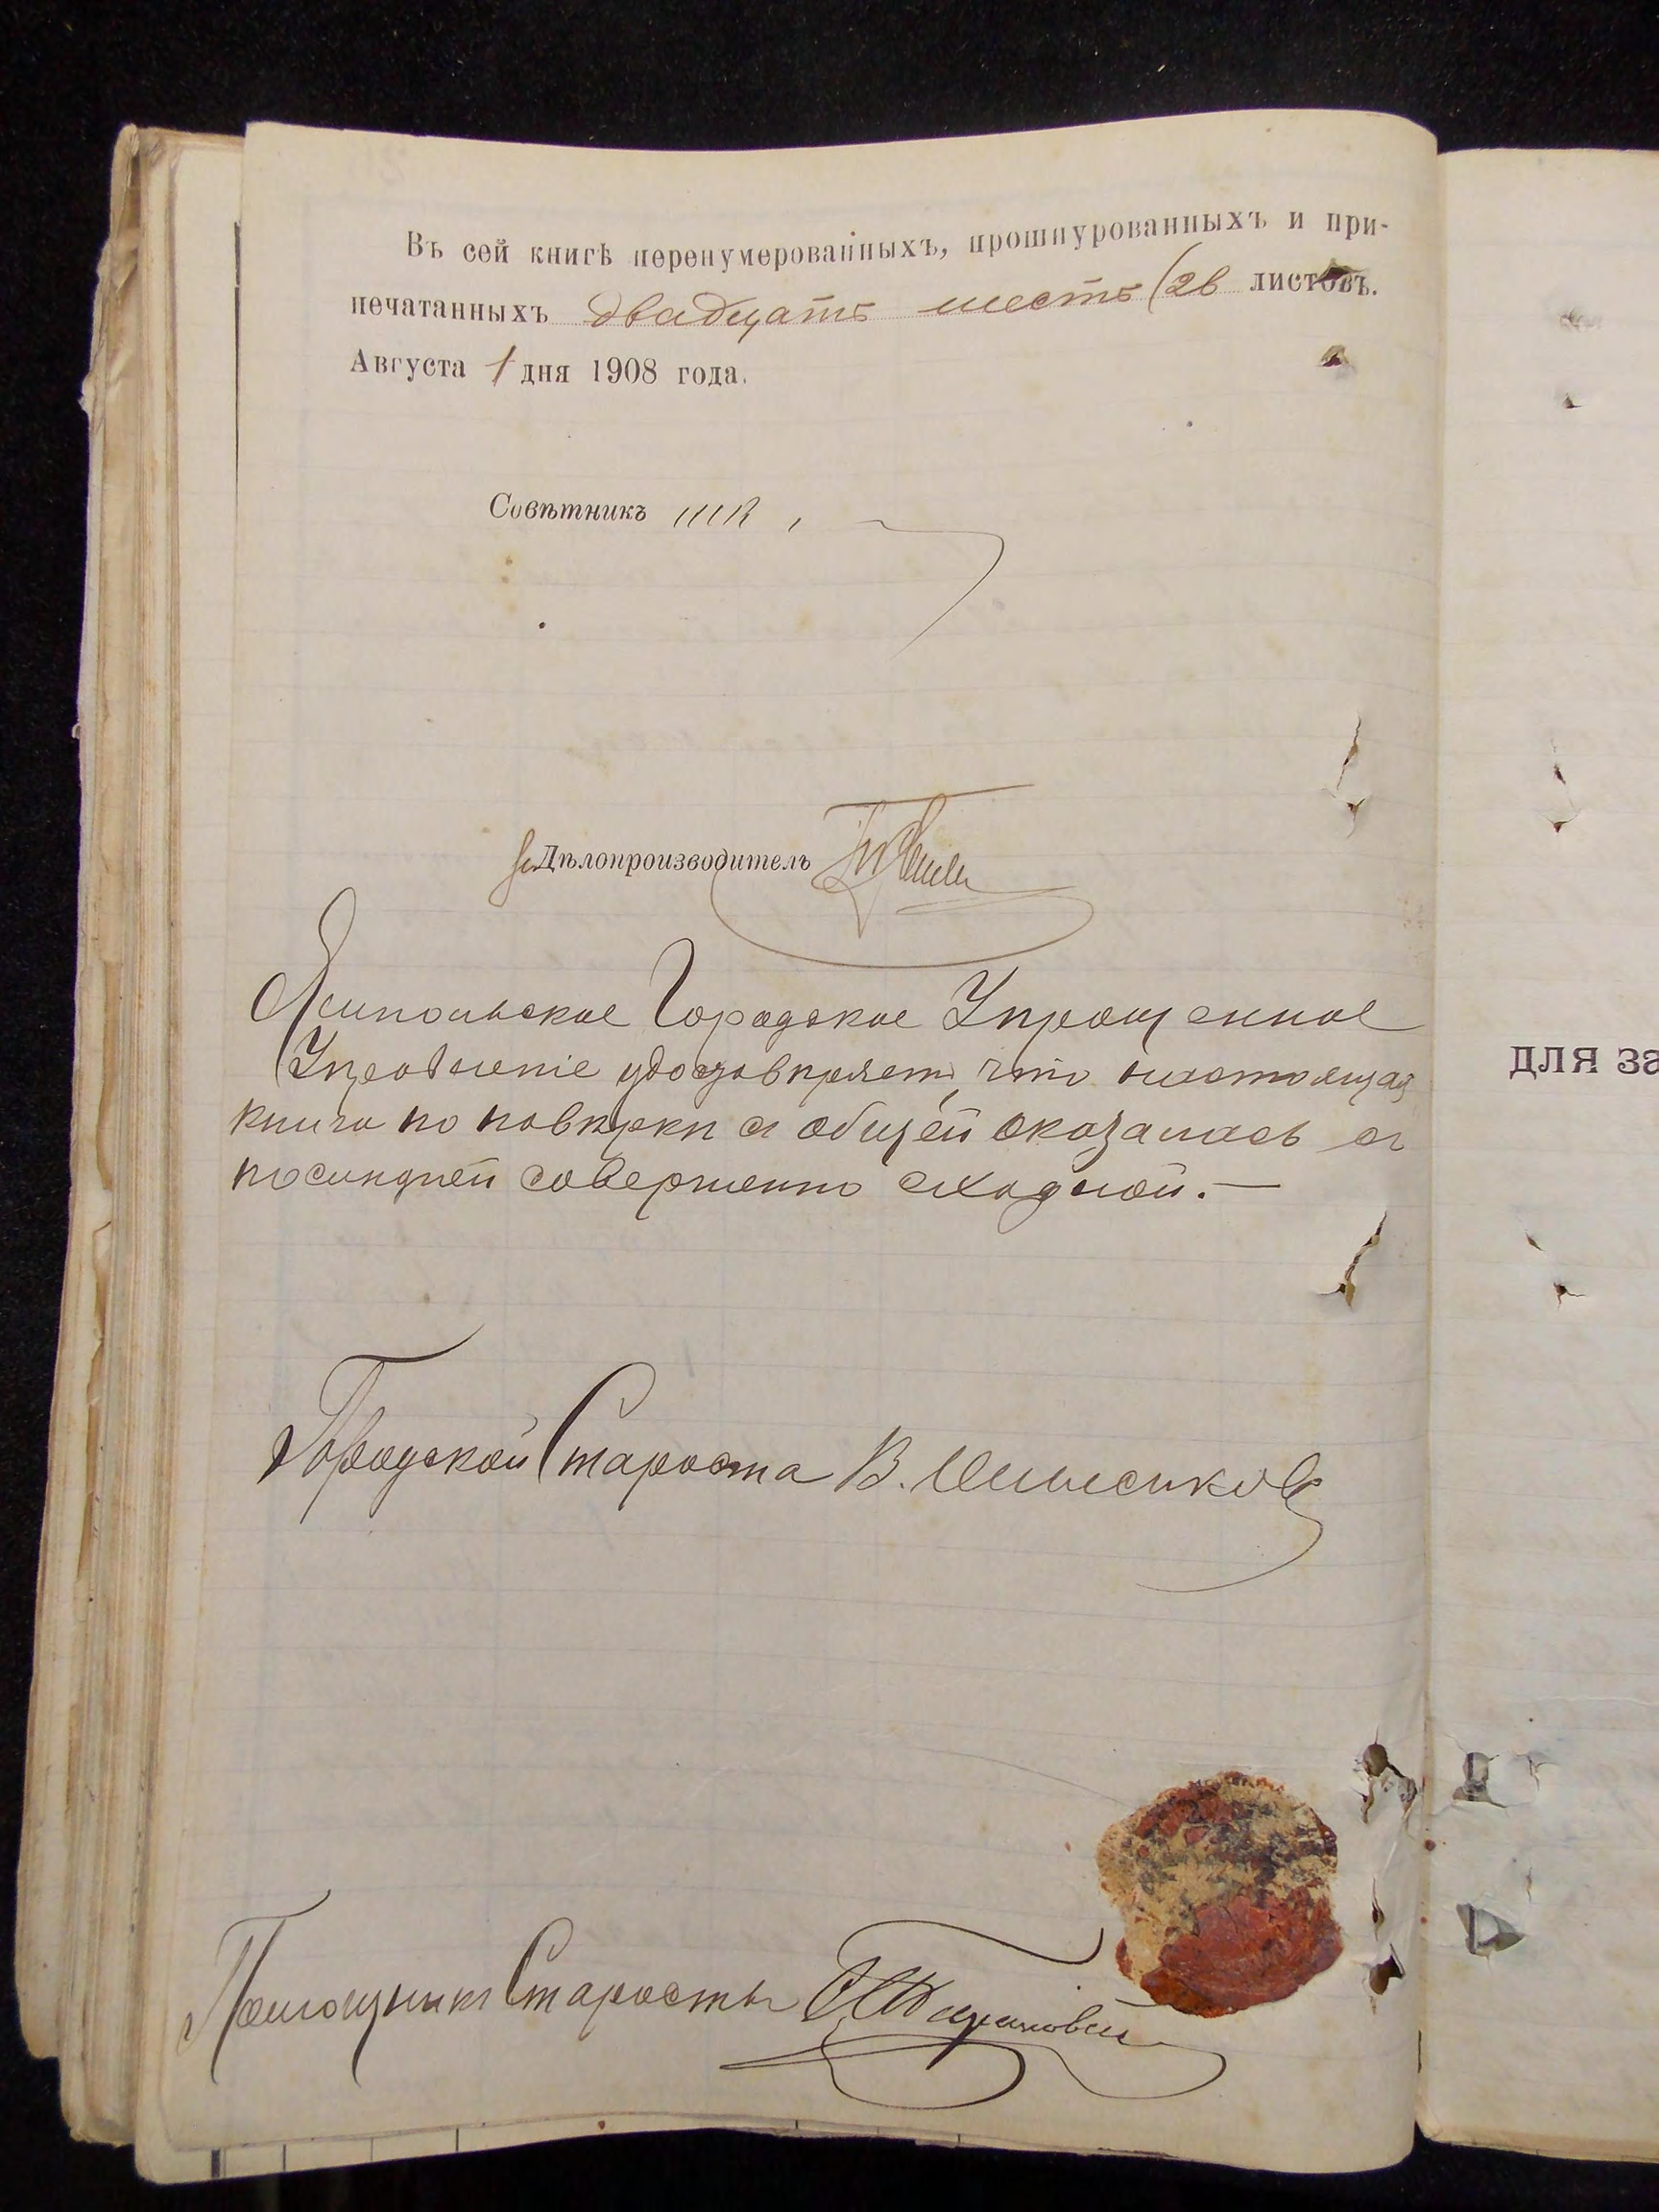 Въ сей книгѣ перенумерованныхъ, прошнурованныхъ и при-
печатанныхъ двадцать шесть (26 листовъ.
Августа 1 дня 1908 года.
Совѣтникъ
Дѣлопроизводитель
Городское Упрощенное
Управленіе удостовѣряетъ, что настоящая
книга по повѣркѣ съ общей оказалась съ
послѣдней совершенно сходной.—
Городской Староста В.
Помощникъ Старосты
ДЛЯ ЗА